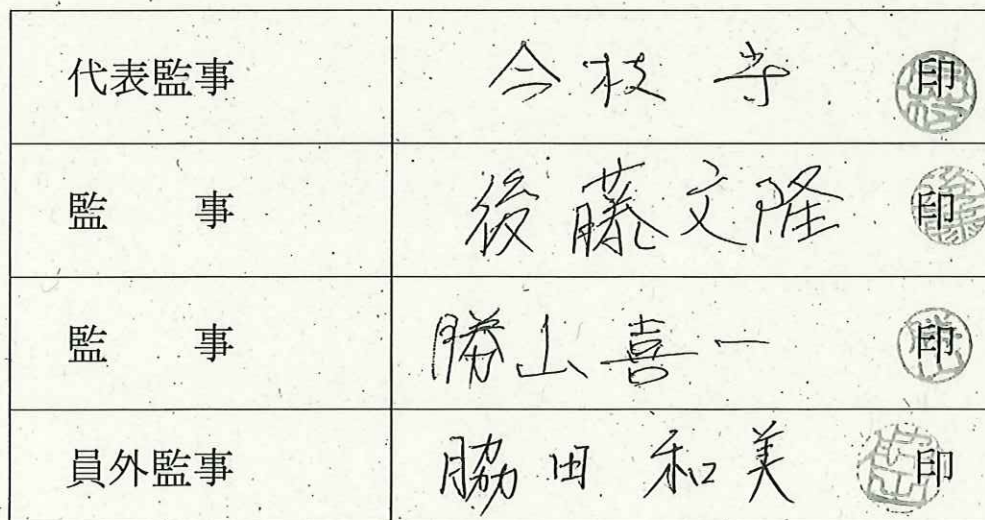 代表監事 今枝 守 印
監 事 後藤文隆 印
監 事 勝山喜一 印
員外監事 脇田 和美 印